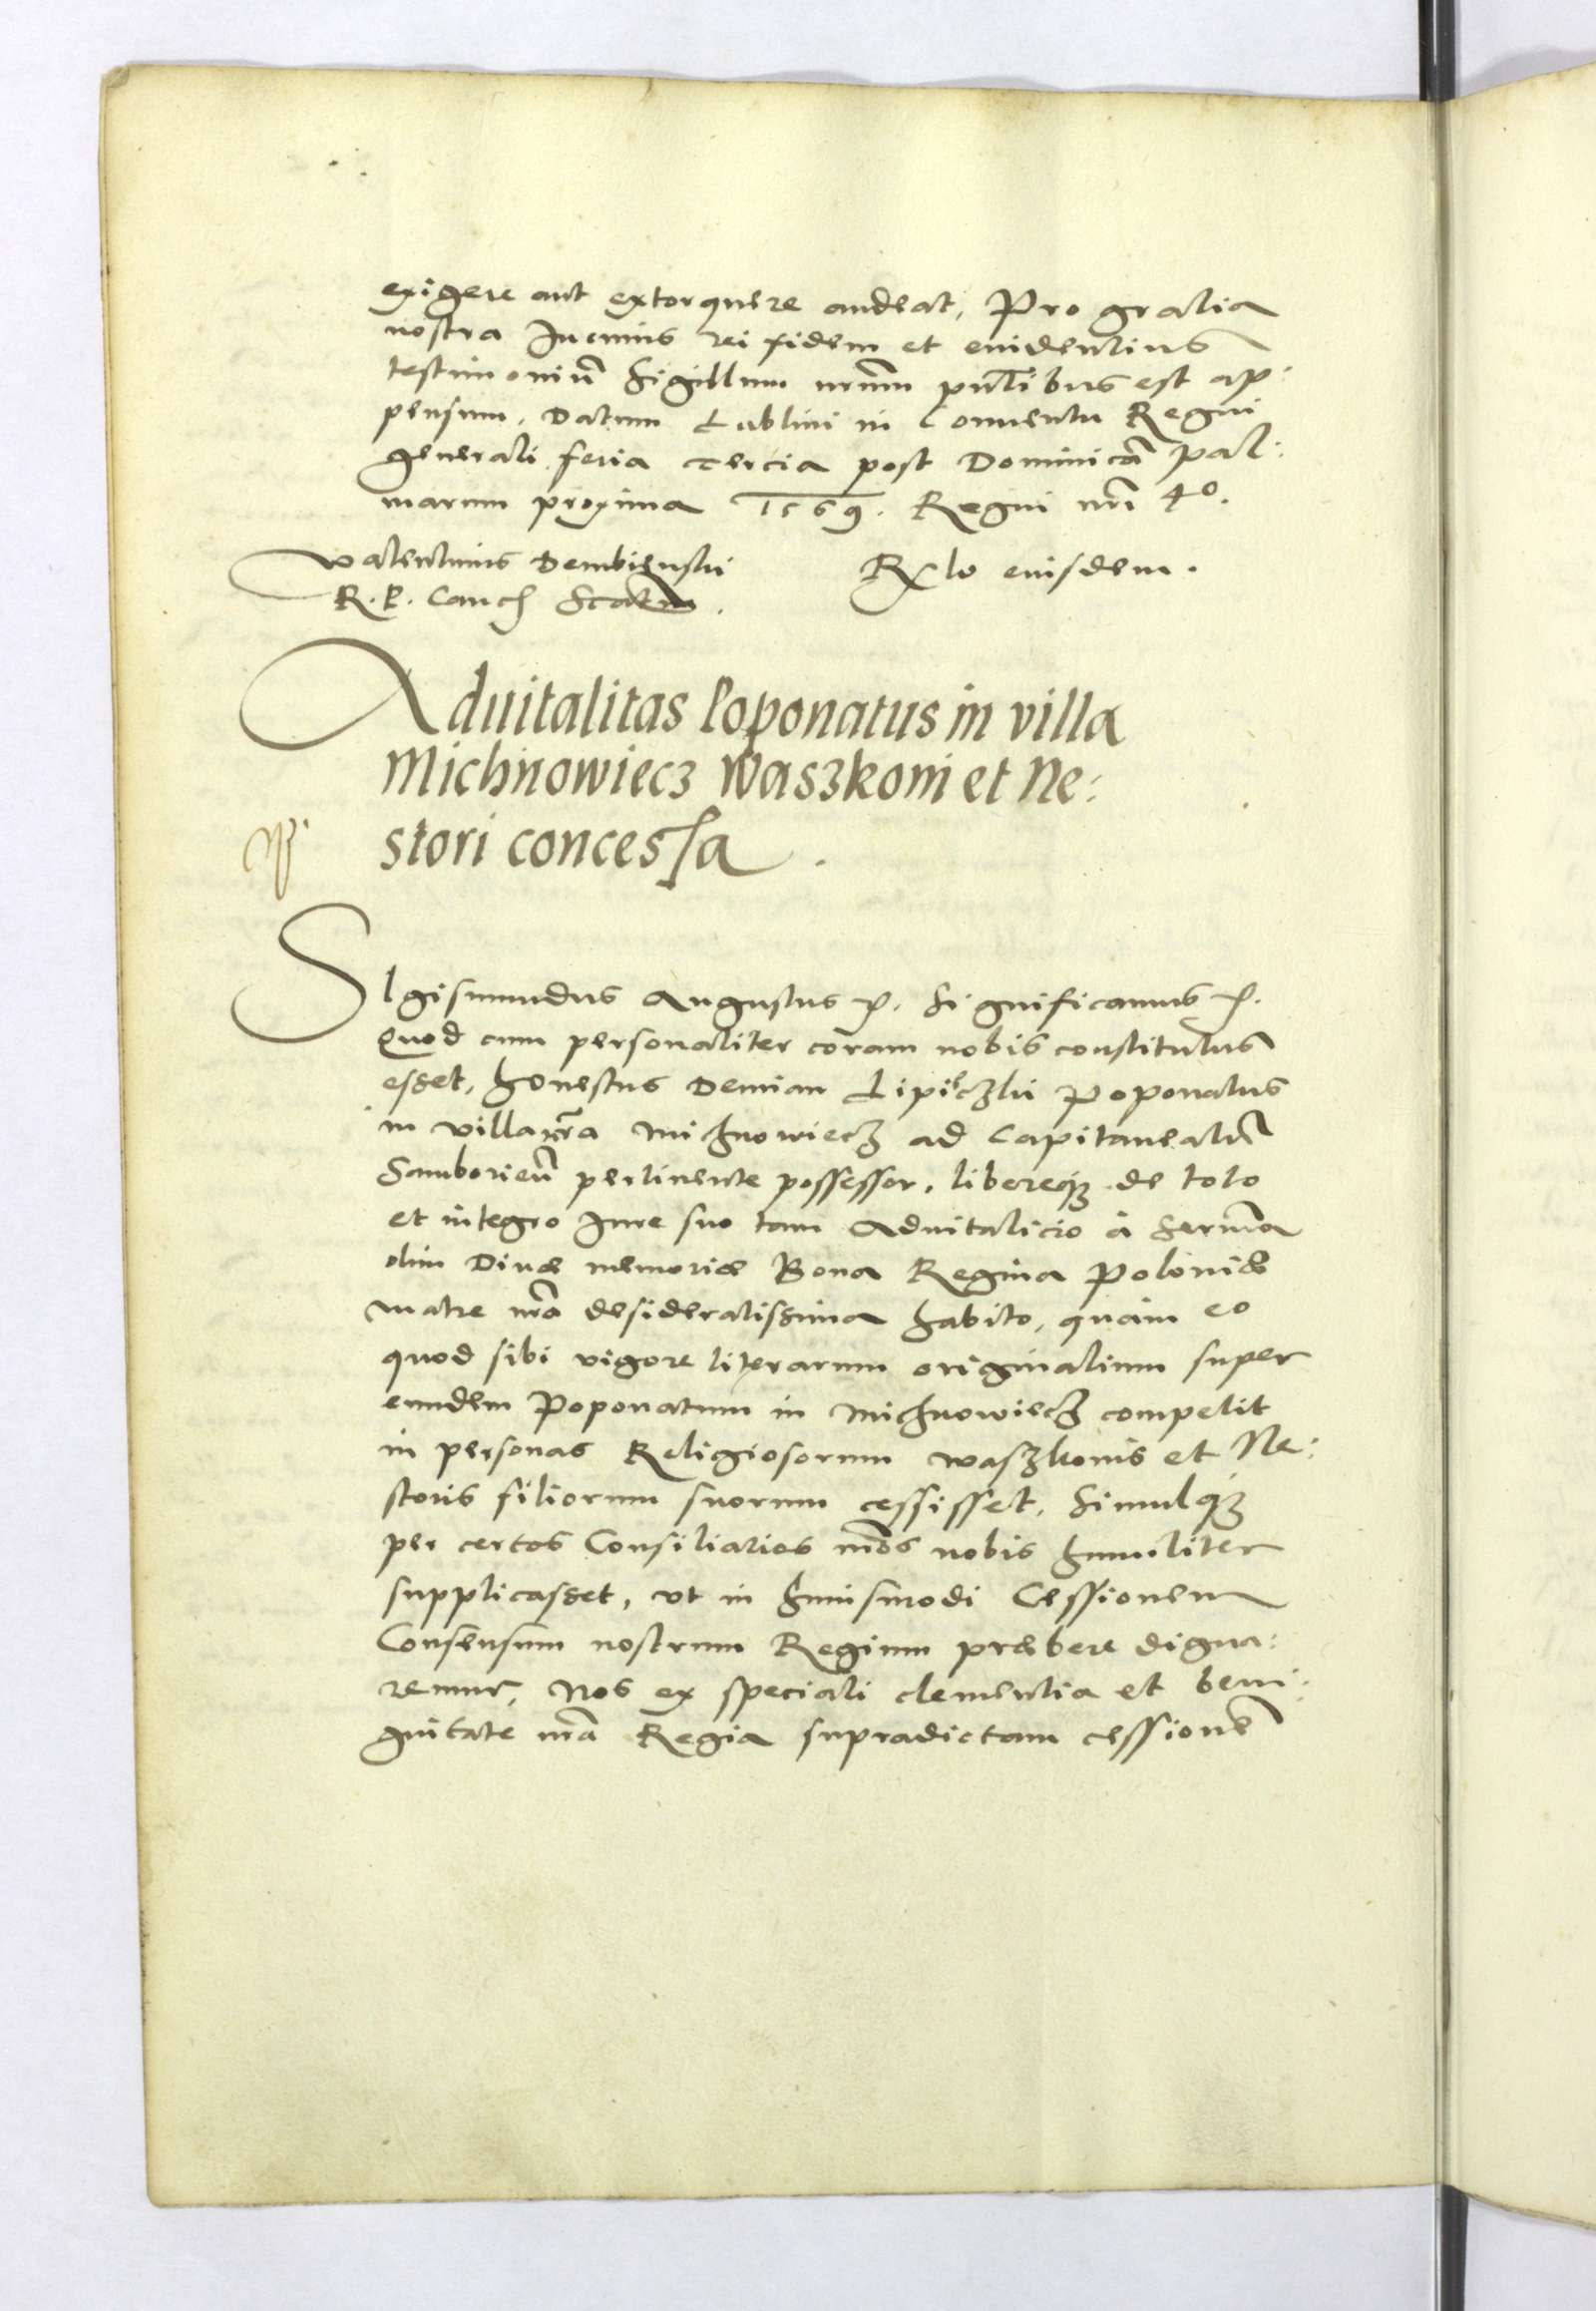 exigere aut extorquere audeat, Pro gratia
nostra In cuius rei fidem et euidentius
testimoniū Sigillum nrūm pñtibus est ap:
pensum. Datum Lublini in Conuentu Regni
generali feria tercia post Dominicā Pal:
marum proxima 1569. Regni nrī 40.
Valentinus Dembienski
R. P. Canc
Rlo eiusdem.
Aduitalitas Poponatus in villa
Michnowiecz Waszkoni et Ne:
stori concessa.
SIgismundus Augustus
Significamus
Quod cum personaliter coram nobis constitutus
esset, honestus Demian Lipieczki Poponatus
in villa nrā Michnowiecz ad Capitaneatū
Samborieñ pertinente possessor, libereqz de toto
et integro Jure suo tam Aduitalicio à Serma
olim Diuæ memoriæ Bona Regina Poloniæ
matre nrā desideratissima habito, quàm eo
quod sibi vigore literarum originalium super
eundem Poponatum in Michnowiecz competit
in personas Religiosorum Waszkonis et Ne:
storis filiorum suorum cessisset, Simulqz
per certos Consiliarios nrōs nobis humiliter
supplicasset, vt in huiusmodi Cessionem
Consensum nostrum Regium præbere digna:
remur, Nos ex speciali clementia et beni:
gnitate nrā Regia supradictam cessionē